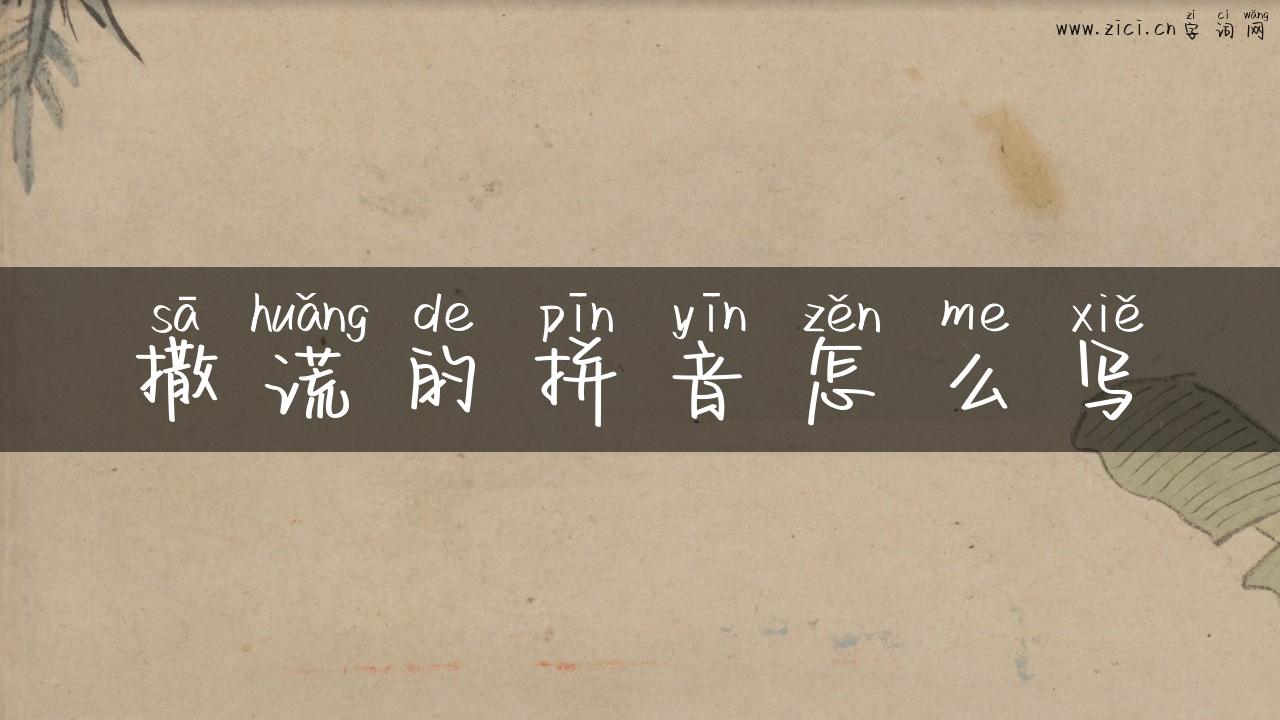 zì cí wǎng
www.zici.cn 字 词 网
sā huǎng de pīn yīn zěn me xiě
撒 谎 的 拼 音 怎 么 写